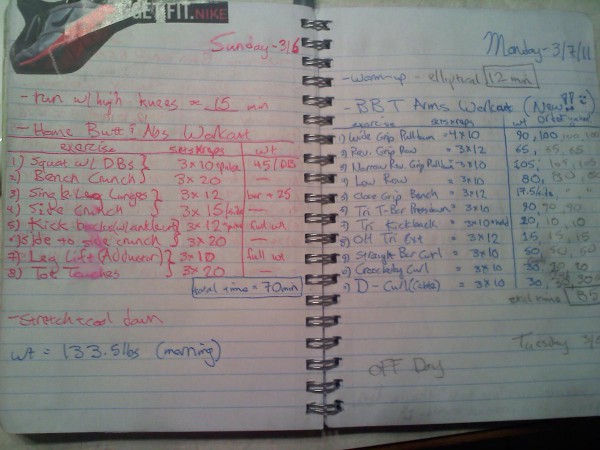 GET FIT. NIKE
Sunday - 3/6
- run w/ high knees = 15 min
- Home Butt & Abs Workout
exercise sets x reps wt
1) Squat w/ DBs 3 x 10 45 / DB
2) Bench Crunch 3 x 20 —
3) Single Leg Lunges 3 x 12 bar + 25
4) Side Crunch 3 x 15 —
5) Kick back (w/ ankle wt) 3 x 12 full wt
6) Side to side crunch 3 x 20 —
7) Leg Lift (Adductor) 3 x 10 full wt
8) Toe Touches 3 x 20 —
total time = 70 min
- stretch + cool down
wt = 133.5 lbs (morning)
Monday - 3/7/11
- warm-up - elliptical 12 min
- BBT Arms Workout (New!!
exercise sets x reps wt
1) Wide Grip Pulldown = 4 x 10 90, 100, 100, 100
2) Rev. Grip Row = 3 x 12 65, 65, 65
3) Narrow Rev. Grip Pulldown = 3 x 10 105,
4) Low Row = 3 x 10 80, 80, 80
5) Close Grip Bench = 3 x 12
6) Tri T-Bar Pressdown = 3 x 10 90, 90, 90
7) Tri Kickback = 3 x 10 20, 10, 10
8) OH Tri Ext = 3 x 12 15, 15, 15
9) Straight Bar Curl = 3 x 10 50, 50, 50
Crossbody Curl = 3 x 10 30
D-Curl (Cable) = 3 x 10 30
total time = 85
Tuesday 3/8
OFF Day